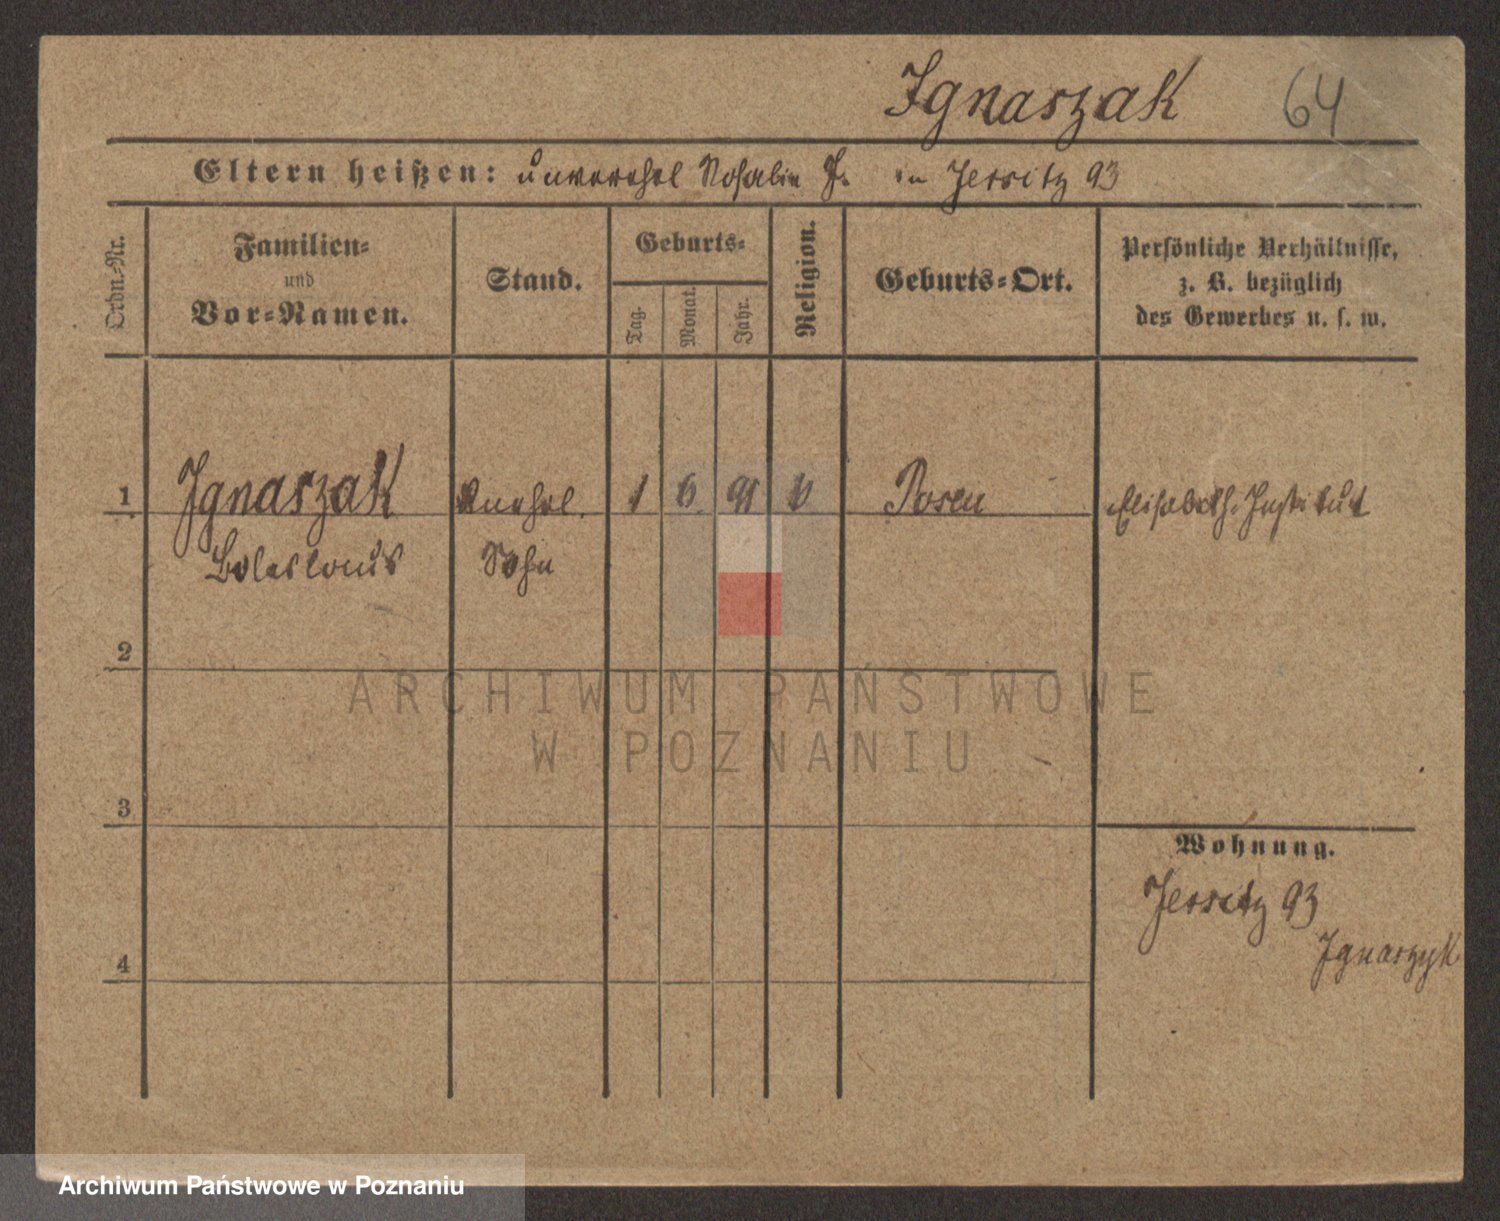 Ignaszak 64
Eltern heißen: unverehel Rosalie I. in Jersitz 93
Ordn.-Nr.
Familien-
und
Vor-Namen.
Stand.
Geburts-
Tag.
Monat.
Jahr.
Religion.
Geburts-Ort.
Persönliche Verhältnisse,
z. B. bezüglich
des Gewerbes u. s. w.
1 Ignaszak unehel. 1 6. 91 Posen Elisabeth-Institut
Boleslaus Sohn
2
ARCHIWUM PAŃSTWOWE
W POZNANIU
3
Wohnung.
Jersitz 93
Ignaszyk
4
Archiwum Państwowe w Poznaniu